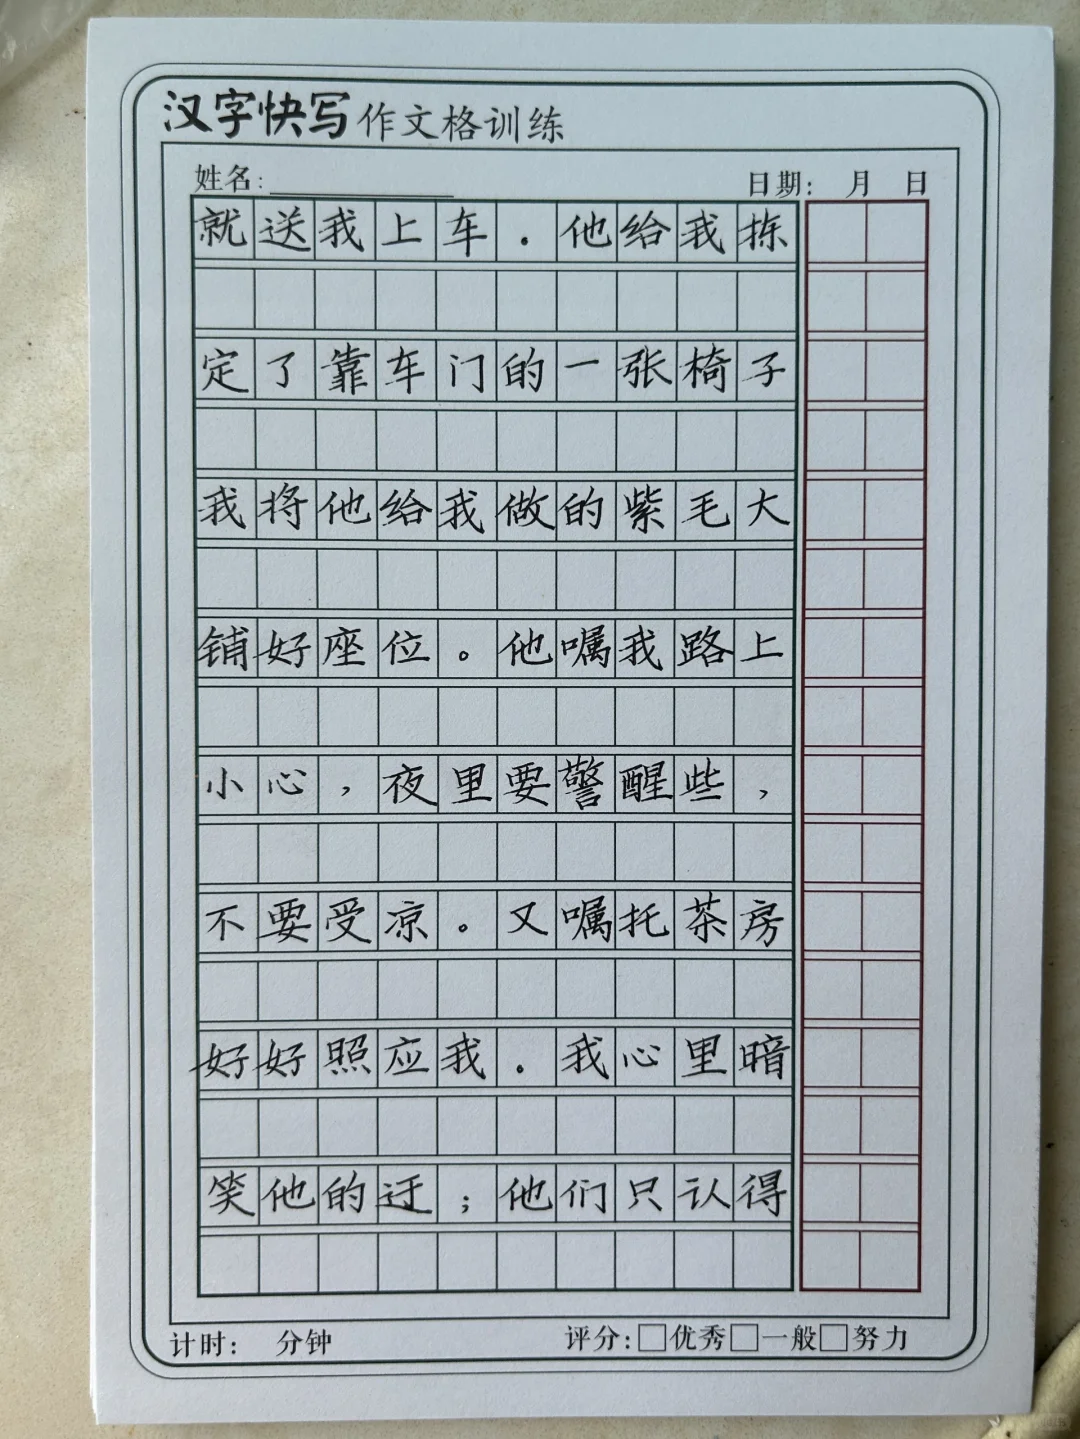 汉字快写作文格训练
姓名: 日期: 月 日
就送我上车.他给我拣
定了靠车门的一张椅子
我将他给我做的紫毛大
铺好座位。他嘱我路上
小心,夜里要警醒些,
不要受凉。又嘱托茶房
好好照应我.我心里暗
笑他的迂;他们只认得
计时: 分钟 评分:□优秀□一般□努力